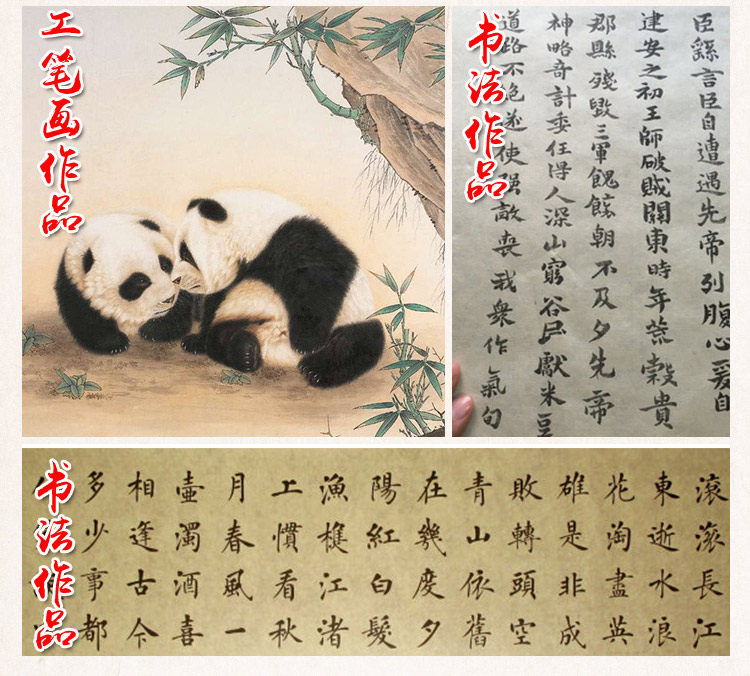 工笔画作品
书法作品
臣繇言臣自遭遇先帝列腹心爰自
建安之初王師破賊關東時年荒穀貴
郡縣殘毀三軍餽餉朝不及夕先帝
神略奇計委任得人深山窮谷民獻米豆
道路不絕遂使强敵喪我衆作氣句
书法作品
滾滾長江
東逝水浪
花淘盡英
雄是非成
敗轉頭空
青山依舊
在幾度夕
陽紅白髮
漁樵江渚
上慣看秋
月春風一
壺濁酒喜
相逢古今
多少事都